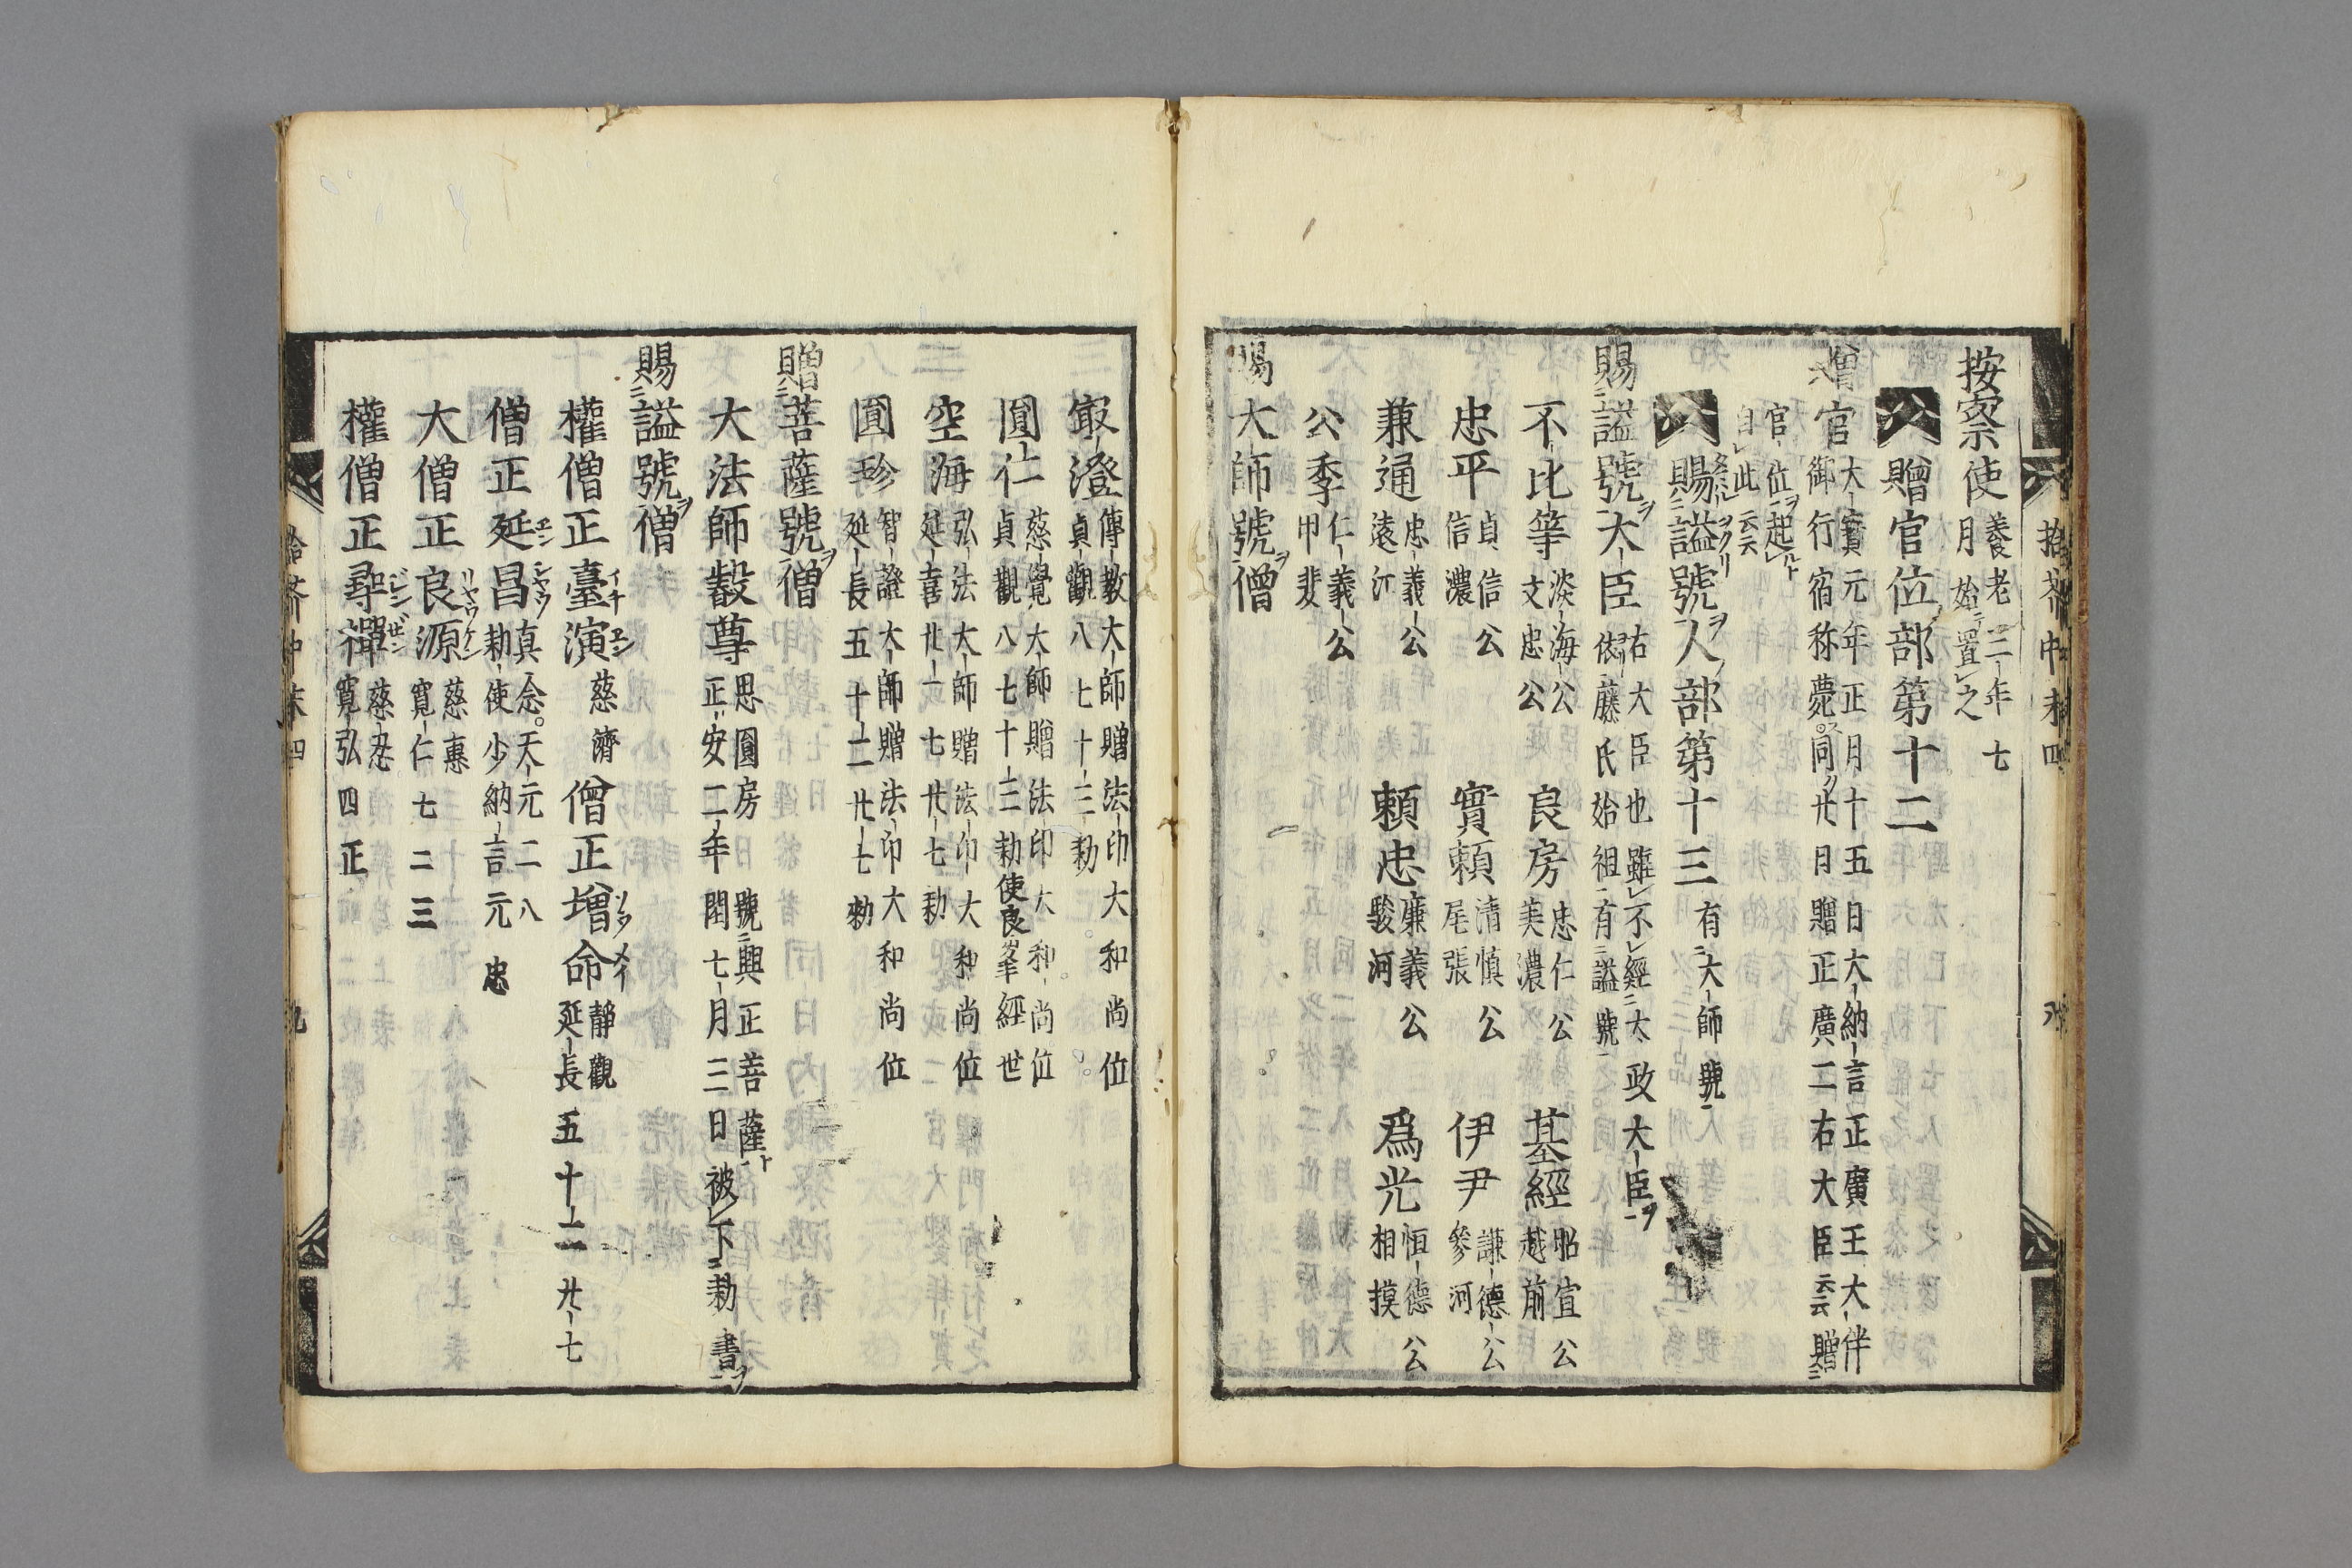 拾芥中末四
按察使 養老三年七月始置之
贈官位部第十二
贈官 大寳元年正月十五日大納言正廣王大伴御行宿称薨同廿日贈正廣二右大臣云云贈官位起自此云云
賜謚號人部第十三 有大師號
賜謚號大臣 右大臣也雖不經太政大臣依藤氏始祖有謚號
不比等 淡海公 文忠公 良房 忠仁公 美濃 基經 昭宣公 越前
忠平 貞信公 信濃 實頼 清慎公 尾張 伊尹 謙德公 參河
兼通 忠義公 遠江 頼忠 廉義公 駿河 爲光 恒德公 相摸
公季 仁義公 甲斐
賜大師號僧
㝡澄 傳教大師贈法印大和尚位 貞觀八七十二勅
圓仁 慈覺大師贈法印大和尚位 貞觀八七十二勅使良峯經世
空海 弘法大師贈法印大和尚位 延喜廿一七廿七勅
圓珍 智證大師贈法印大和尚位 延長五十二廿七勅
贈菩薩號僧
大法師叡尊 思圓房號興正菩薩 正安二年閏七月三日被下勅書
賜謚號僧
權僧正臺演 慈濟 僧正增命 靜觀 延長五十二廿七
僧正延昌 真念天元二八 勅使少納言元忠
大僧正良源 慈惠 寛仁七二三
權僧正尋禪 慈忍 寛弘四正
拾芥中末四 九